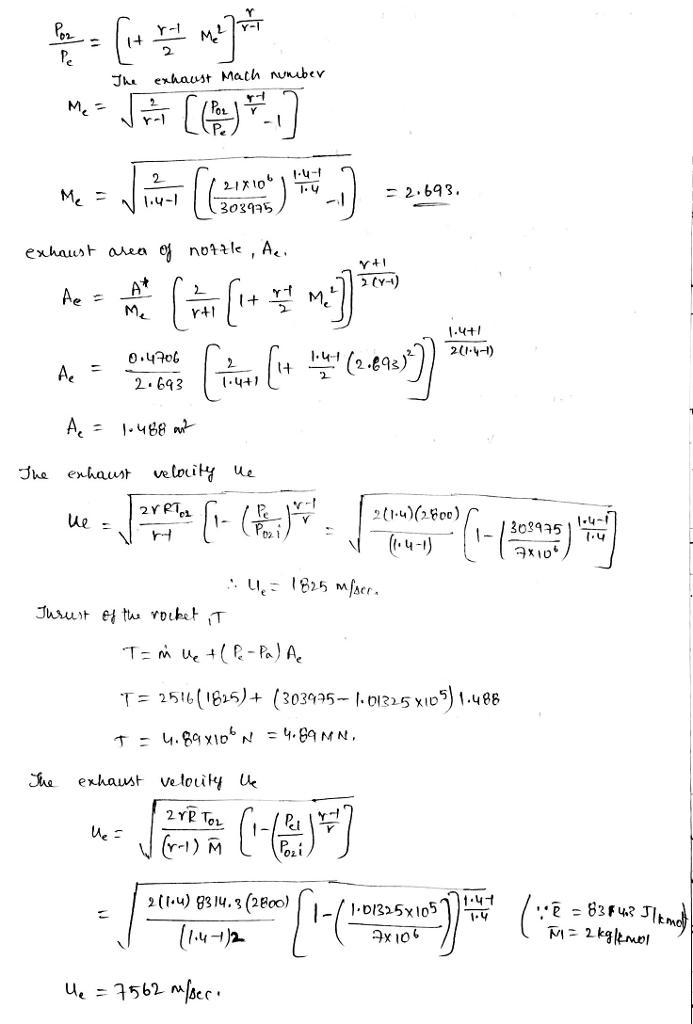 P₀₂/Pₑ = [1 + (γ-1)/2 Mₑ²]^(γ/(γ-1))
The exhaust Mach number
Mₑ = √(2/(γ-1) [(P₀₂/Pₑ)^((γ-1)/γ) - 1])
Mₑ = √(2/(1.4-1) [(21×10⁶/303975)^((1.4-1)/1.4) - 1]) = 2.693.
exhaust area of nozzle, Ae.
Ae = A*/Mₑ [2/(γ+1) [1 + (γ-1)/2 Mₑ²]]^((γ+1)/(2(γ-1)))
Ae = 0.4706/2.693 [2/(1.4+1) [1 + (1.4-1)/2 (2.693)²]]^((1.4+1)/(2(1.4-1)))
Ae = 1.488 m²
The exhaust velocity Ue
Ue = √(2γRT₀₂/(γ-1) [1 - (Pe/P₀₂i)^((γ-1)/γ)]) = √(2(1.4)(2800)/(1.4-1) [1 - (303975/7×10⁶)^((1.4-1)/1.4)])
∴ Ue = 1825 m/sec.
Thrust of the rocket, T
T = ṁ Ue + (Pe - Pa) Ae
T = 2516(1825) + (303975 - 1.01325×10⁵) 1.488
T = 4.89×10⁶ N = 4.89 MN.
The exhaust velocity Ue
Ue = √(2γR̄T₀₂/((γ-1)M̄) [1 - (Pe1/P₀₂i)^((γ-1)/γ)])
= √(2(1.4)8314.3(2800)/((1.4-1)2) [1 - (1.01325×10⁵/7×10⁶)]^((1.4-1)/1.4)) (∵ R̄ = 8314.3 J/kmol
M̄ = 2kg/kmol)
Ue = 7562 m/sec.